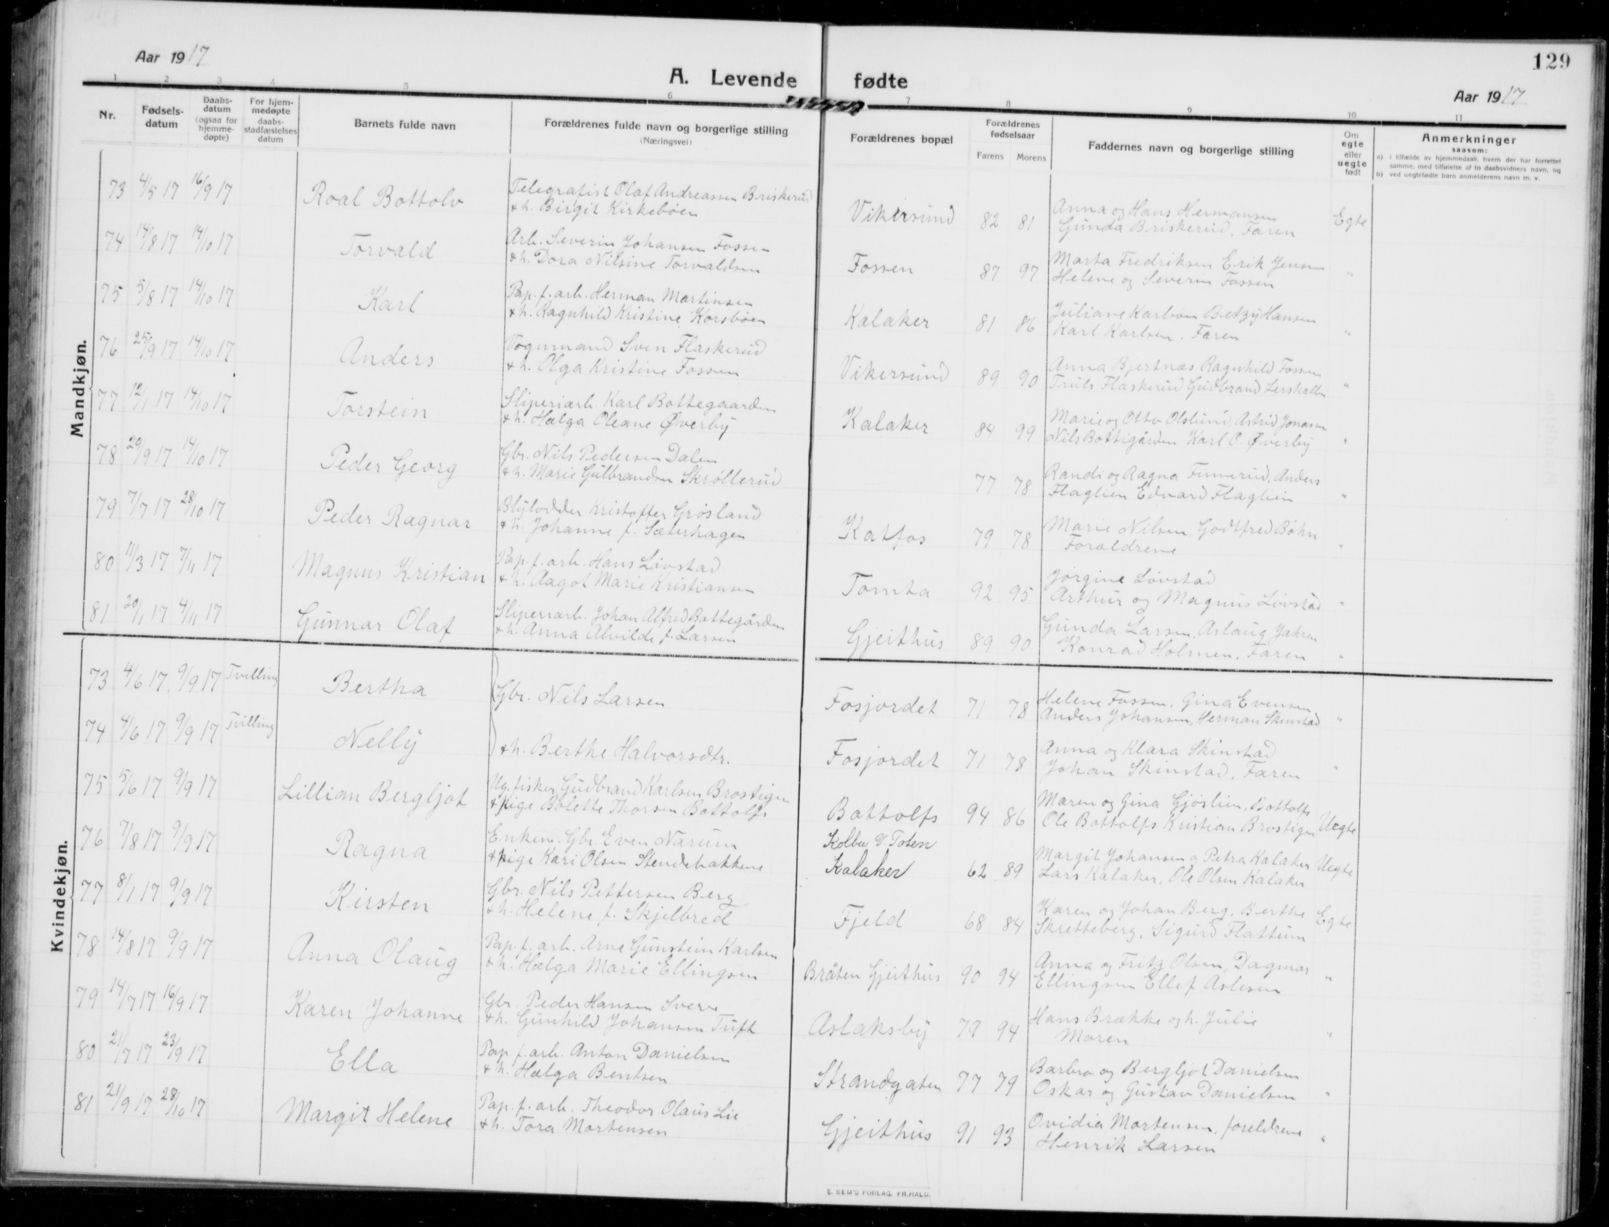 129
Aar 1917
A. Levende fødte
Aar 1917
1 2 3 4 5 6 7 8 9 10 11
Nr.
Fødselsdatum
Daabsdatum (ogsaa for hjemmedøpte)
For hjemmedøpte daabsstadfæstelses datum
Barnets fulde navn
Forældrenes fulde navn og borgerlige stilling
(Næringsvei)
Forældrenes bopæl
Forældrenes fødselsaar
Farens Morens
Faddernes navn og borgerlige stilling
Om egte eller uegte født
Anmerkninger
saasom:
a) i tilfælde av hjemmedaab, hvem der har forrettet samme, med tilføielse af to daabsvidners navn, og
b) ved uegtefødte barn anmelderens navn m. v.
Mandkjøn.
73 4/5 17 16/9 17 Roal Bottolv Telegrafist Olaf Andreassen Briskerud Vikersund 82 81 Anna og Hans Hermansen Egte
+ h. Birgit Kirkebøen Gunda Briskerud, Faren
74 14/8 17 14/10 17 Torvald Arb. Severin Johansen Fossen Fossen 87 97 Marta Fredriksen Erik Jensen "
+ h. Dora Nilsine Torvaldsen Helene og Severin Fossen
75 5/8 17 14/10 17 Karl Pap. f. arb. Herman Martinsen Kalaker 81 86 Juliane Karlsen Betzy Hansen "
+ h. Ragnhild Kristine Korsbøen Karl Karlsen. Faren
76 25/9 17 14/10 17 Anders Vognmand Sven Flaskerud Vikersund 89 90 Anna Bjertnæs Ragnhild Fossen "
+ h. Olga Kristine Fossen Truls Flaskerud Gudbrand
77 12/1 17 14/10 17 Torstein Sliperiarb. Karl Bottegaarden Kalaker 84 99 Marie og Otto Oslund, Astrid Jonasen "
+ h. Hælga Oleane Øverby Nils Bottegården Karl O. Øverby
78 20/9 17 14/10 17 Peder Georg Gbr. Nils Pedersen Dalen 77 78 Randi og Ragna Finnerud, Anders "
+ h. Marie Gulbrandsen Skrøllerud Flaglien Edvard Flaglien
79 7/7 17 28/10 17 Peder Ragnar Blylodder Kristoffer Grøsland Katfos 79 78 Marie Nilsen Godtfred Bøhn "
+ h. Johanne f. Sæterhagen Foræld­rene
80 11/3 17 7/11 17 Magnus Kristian Pap. f. arb. Hans Løvstad Tomta 92 95 Jørgine Løvstad "
+ h. Aagot Marie Kristiansen Arthur og Magnus Løvstad
81 20/1 17 4/11 17 Gunnar Olaf Sliperiarb. Johan Alfred Bottegården Gjeithus 89 90 Gunda Larsen, Aslaug Jahren "
+ h. Anna Alvilde f. Larsen Konrad Holmen. Faren
Kvindekjøn.
73 4/6 17 9/9 17 Tvilling Bertha Gbr. Nils Larsen Fosjordet 71 78 Helene Fossen, Gina Evensen "
Anders Johansen, Herman Skinstad
74 4/6 17 9/9 17 Tvilling Nelly + h. Berthe Halvorsdtr. Fosjordet 71 78 Anna og Klara Skinstad "
Johan Skinstad, Faren
75 5/6 17 9/9 17 Lillian Bergljot Ug. fisker Gudbrand Karlsen Brostigen Bottolfs 94 86 Maren og Gina Gjøslien, Bottolfs Uegte
+ Pige Bolette Thorsen Bottolfs Ole Bottolfs Kristian Brostigen
76 7/8 17 9/9 17 Ragna Enkem. Gbr. Even Narum Kolbu V. Toten Margit Johansen o Petra Kalaker Uegte
+ Pige Kari Olsen Stendebakkene Kalaker 62 89 Lars Kalaker, Ole Olsen Kalaker
77 8/1 17 9/9 17 Kirsten Gbr. Nils Pettersen Berg Fjeld 68 84 Karen og Johan Berg, Berthe Egte
+ h. Helene f. Skjelbred Skretteberg, Sigurd Flattum
78 14/8 17 9/9 17 Anna Olaug Pap. f. arb. Arne Gunstein Karlsen Bråten Gjeithus 90 94 Anna og Fritz Olsen, Dagmar "
+ h. Hælga Marie Ellingsen Ellingsen Ellef Aslesen
79 14/7 17 16/9 17 Karen Johanne Gbr. Peder Hansen Sverve Aslaksby 79 94 Hans Brække og h. Julie "
+ h. Gunhild Johansen Tuft Moren
80 21/7 17 23/9 17 Ella Pap. f. arb. Anton Danielsen Strandgaten 77 79 Barbro og Bergljot Danielsen "
+ h. Hælga Bentsen Oskar og Gustav Danielsen
81 21/9 17 28/10 17 Margit Helene Pap. f. arb. Theodor Olaus Lie Gjeithus 91 93 Ovidia Mortensen, foreldrene "
+ h. Tora Mortensen Henrik Larsen
E. SEM'S FORLAG, FR.HALD.